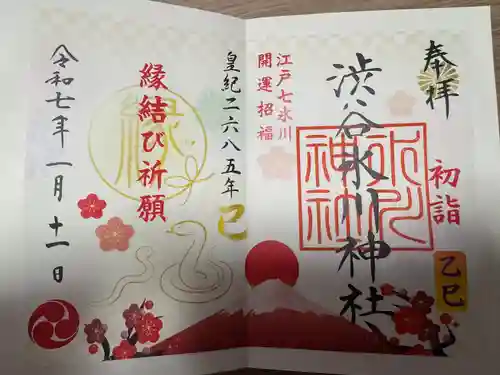 奉拝
初詣
乙巳
渋谷氷川神社
氷川神社
江戸七氷川
開運招福
皇紀二六八五年
巳
縁
縁結び祈願
令和七年一月十一日